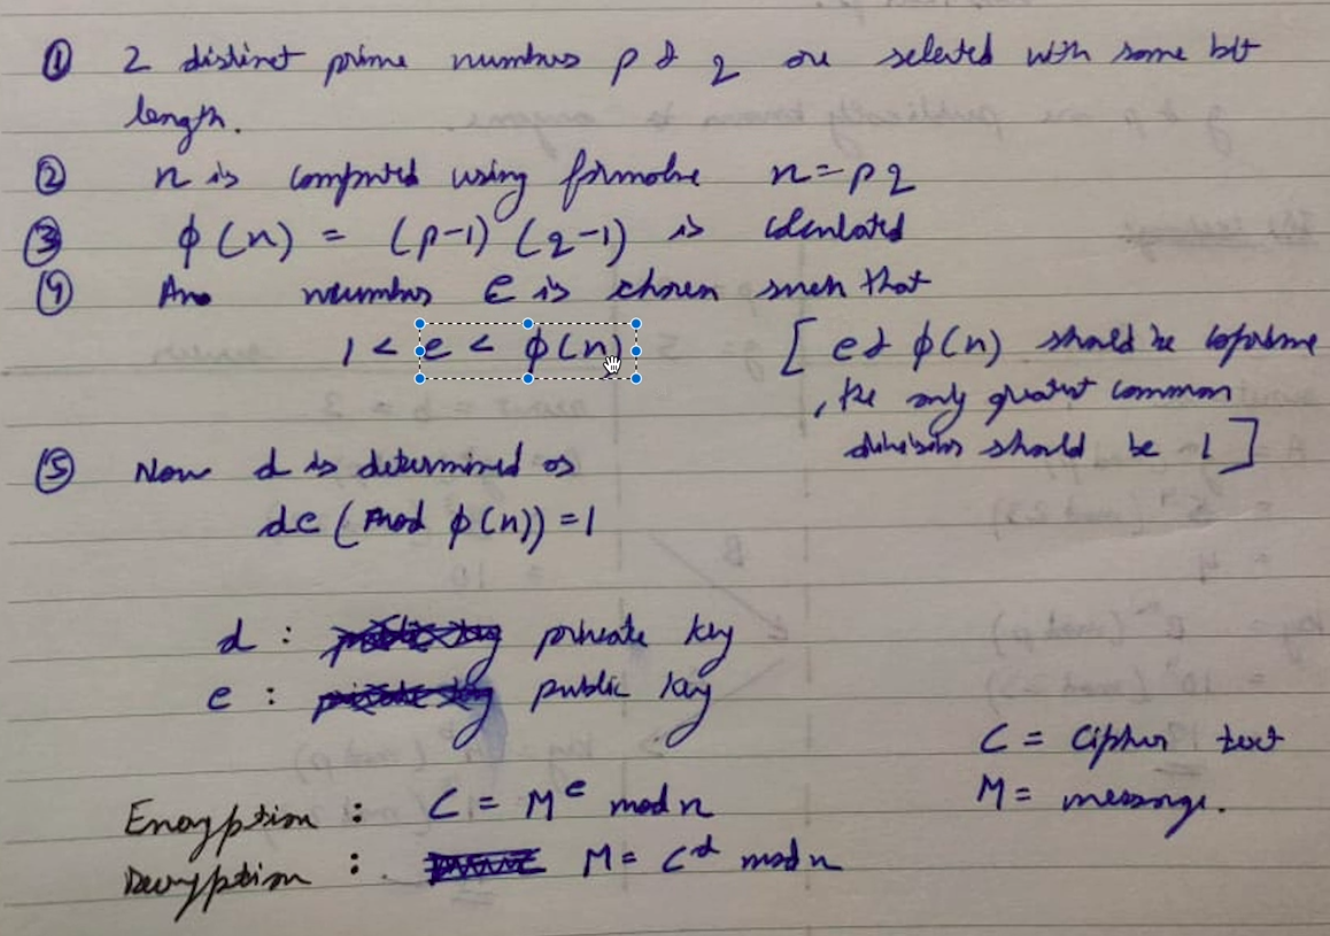 ① 2 distinct prime numbers p & q are selected with same bit
length.
② n is computed using formulae n = pq
③ φ(n) = (p-1) (q-1) is calculated
④ An number e is chosen such that
1 < e < φ(n) [e & φ(n) should be coprime
, the only greatest common
divisors should be 1]
⑤ Now d is determined as
de (mod φ(n)) = 1
d : private key
e : public key
C = Cipher text
M = message.
Encryption : C = M^e mod n
Decryption : M = C^d mod n